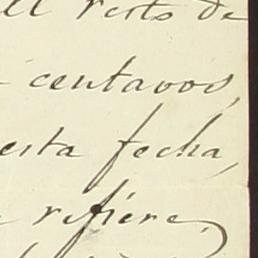 resto de
centavos,
esta fecha,
refiere,